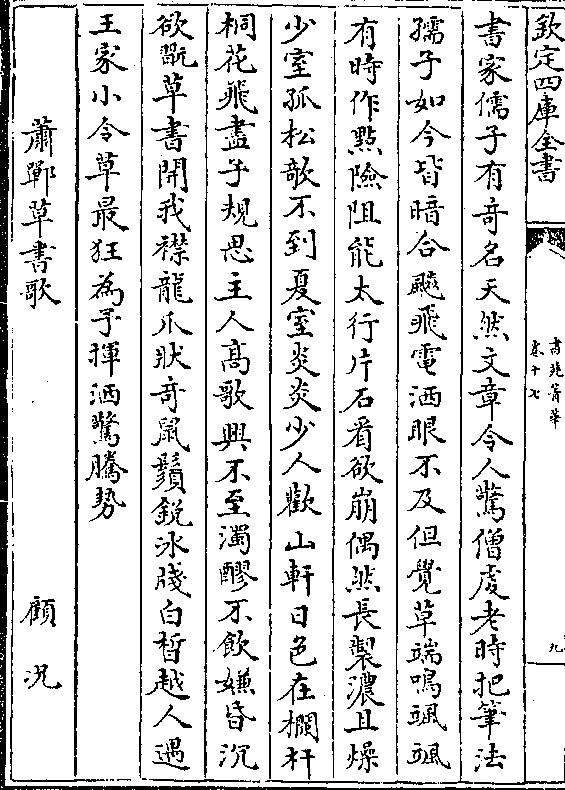 欽定四庫全書
書苑菁華
卷十七
九
書家儒子有奇名天然文章令人驚僧虔老時把筆法
孺子如今皆暗合飈飛電洒眼不及但覺草端鳴颯颯
有時作點險阻能太行片石看欲崩偶然長掣濃且燥
少室孤松欹不到夏室炎炎少人歡山軒日色在欄杆
桐花飛盡子規思主人髙歌興不至濁醪不飲嫌昏沉
欲翫草書開我襟龍爪狀奇鼠鬚銳冰牋白皙越人遇
王家小令草最狂為予揮洒驚騰勢
蕭鄲草書歌
顧況